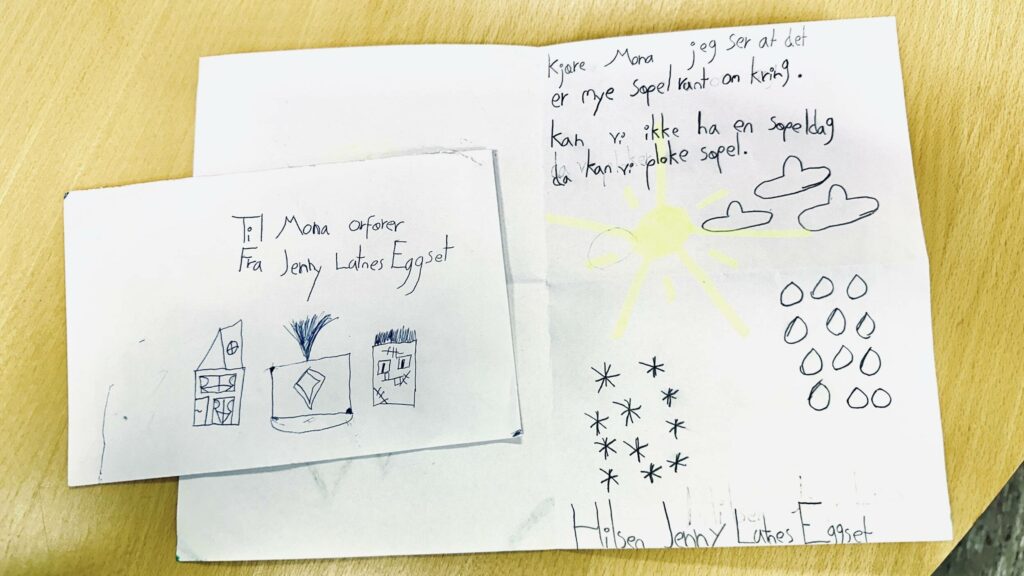 Til Mona orfører
Fra Jenny Latnes Eggset
Kjøre Mona jeg ser at det
er mye søpel runt om kring.
kan vi ikke ha en søpeldag
da kan vi ploke søpel.
Hilsen Jenny Latnes Eggset